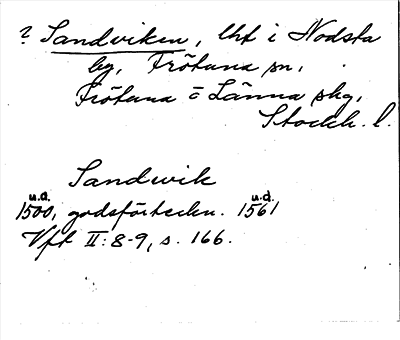 ? Sandviken, lht i Nodsta
by, Frötuna sn,
Frötuna o Länna skg,
Stockh. l.
Sandwik
u.d. u.d.
1500, godsförteckn. 1561
Vft II:8-9, s. 166.